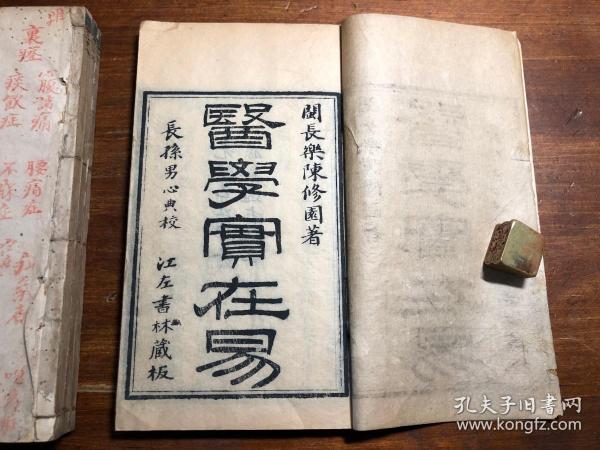 閩長樂陳修園著
醫學實在易
長孫男心典校
江左書林藏板
裏症
腹痛
痰飲症
腰痛症
孔夫子旧书网
www.kongfz.com